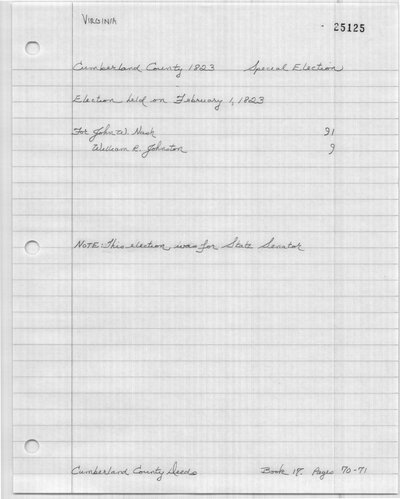 VIRGINIA
25125
Cumberland County 1823 Special Election
Election held on February 1, 1823
For John W. Nash 91
William R. Johnston 9
NOTE: This election was for State Senator
Cumberland County Deeds Book 18. Pages 70-71